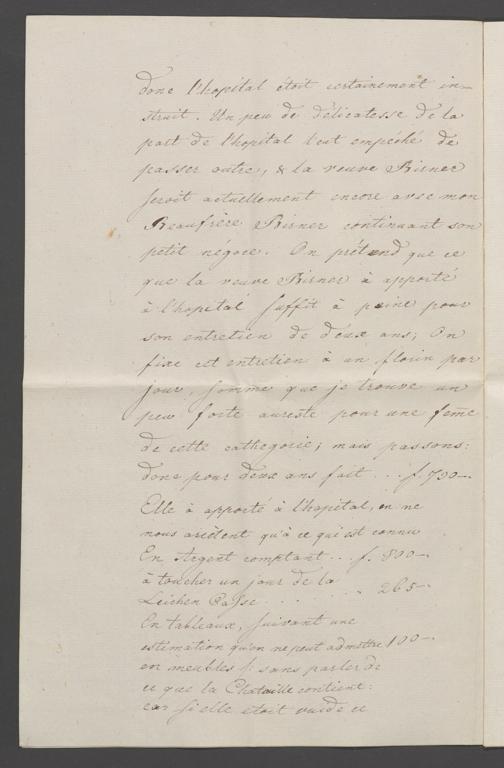 dont l'hopital étoit certainement in-
struit. Un peu de délicatesse de la
part de l'hopital l'eut empéché de
passer outre, & la veuve Risner
seroit actuellement encore avec mon
Beaufrère Risner continuant son
petit négoce. On prétend que ce
que la veuve Risner à apporté
à l'hopital suffit à peine pour
son entretien de deux ans; On
fixe cet entretien à un florin par
jour, somme que je trouve un
peu forte aureste pour une feme
de cette cathegorie; mais passons:
donc pour deux ans fait ... f. 700-.
Elle à apporté à l'hopital, en ne
nous arrêtent qu'à ce qui est connu
En Argent comptant ... f. 800-.
à toucher un jour de la
Leichen Casse . . . . . . . " 265-.
En tableaux, suivant une
estimation qu'on ne peut admettre 100-.
en meubles /: sans parler de
ce que la Chataille contient:
car si elle etoit vuide ce